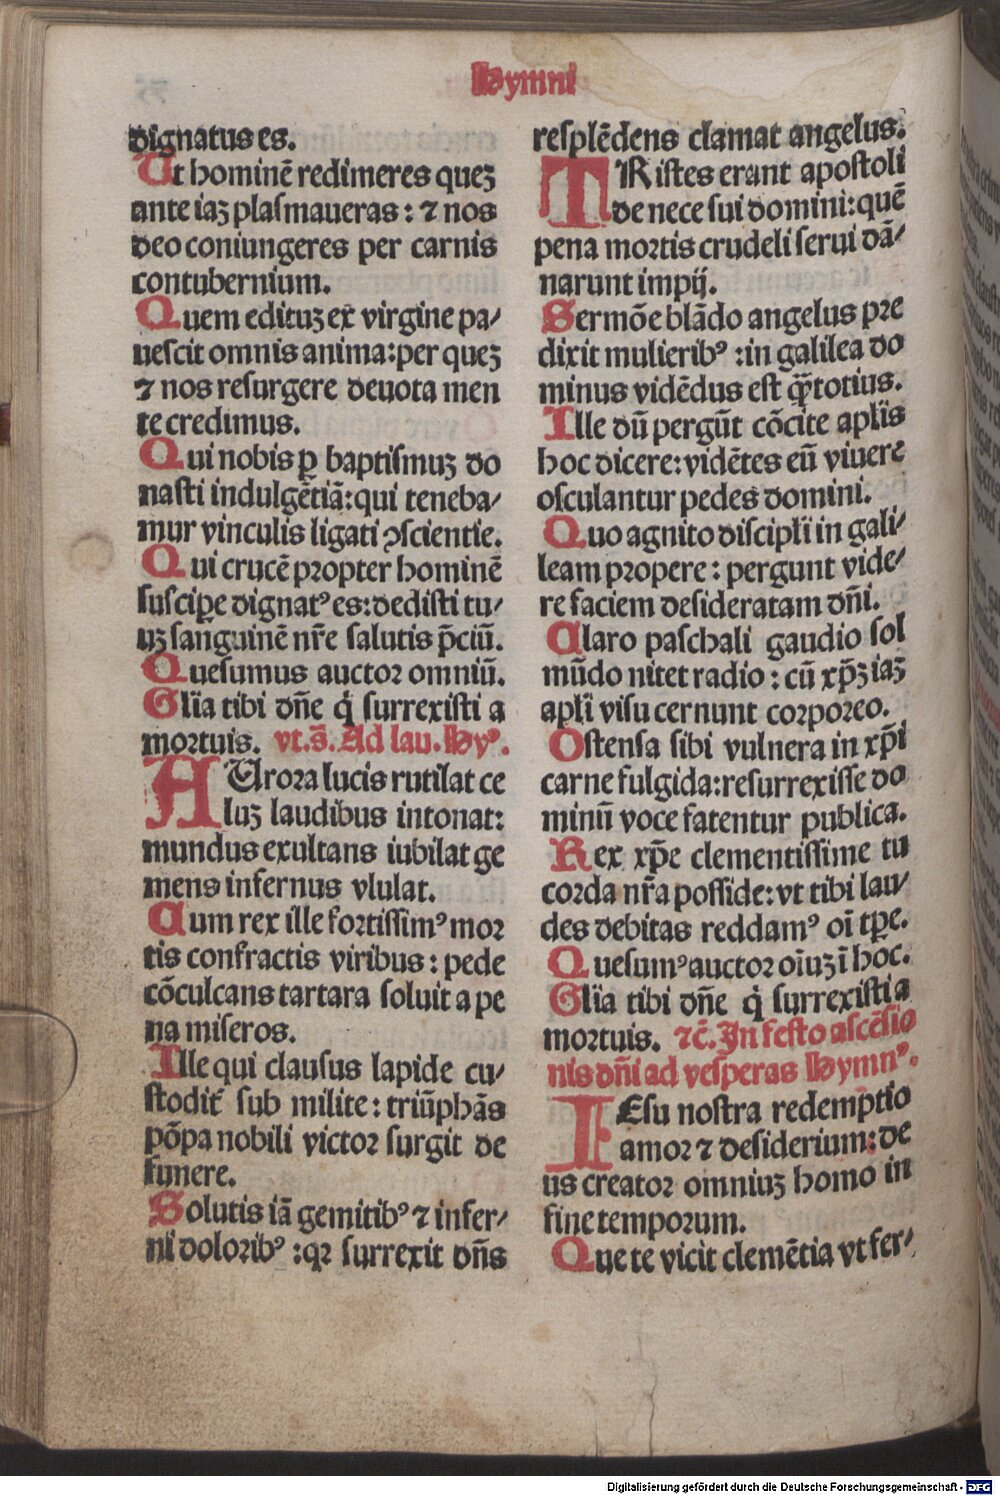 Hymni
dignatus es.
Ut hominē redimeres quez
ante iaz plaſmaueras : ⁊ nos
deo coniungeres per carnis
contubernium.
Quem edituz ex virgine pa⸗
ueſcit omnis anima: per quez
⁊ nos reſurgere deuota men
te credimus.
Qui nobis ꝑ baptiſmuz do
naſti indulgētiā: qui teneba⸗
mur vinculis ligati ꝯſcientie.
Qui crucē propter hominē
ſuſciꝑe dignatꝰ es: dediſti tu⸗
uz ſanguinē nr̄e ſalutis p̄ciū.
Queſumus auctor omniū.
Glīa tibi dn̄e q̇ ſurrexiſti a
mortuis. vt.s̄. Ad lau. Hyꝰ.
AUrora lucis rutilat ce
luz laudibus intonat:
mundus exultans iubilat ge
mens infernus vlulat.
Cum rex ille fortiſſimꝰ mor
tis confractis viribus : pede
cōculcans tartara ſoluit a pe
na miſeros.
Ille qui clauſus lapide cu⸗
ſtodit᷑ ſub milite : triūphās
pōpa nobili victor ſurgit de
funere.
Solutis iā gemitibꝰ ⁊ infer⸗
ni doloribꝰ : qꝛ ſurrexit dn̄s
reſplēdens clamat angelus.
TRiſtes erant apoſtoli
de nece ſui domini: quē
pena mortis crudeli ſerui dā⸗
narunt impij.
Sermōe blādo angelus pre
dixit mulieribꝰ : in galilea do
minus vidēdus eſt q̄ꝫtotius.
Ille dū pergūt cōcite aplīs
hoc dicere: vidētes eū viuere
oſculantur pedes domini.
Quo agnito diſciplī in gali⸗
leam propere : pergunt vide⸗
re faciem deſideratam dn̄i.
Claro paſchali gaudio ſol
mūdo nitet radio : cū xp̄z iaz
aplī viſu cernunt corporeo.
Oſtenſa ſibi vulnera in xp̄i
carne fulgida: reſurrexiſſe do
minū voce fatentur publica.
Rex xp̄e clementiſſime tu
corda nr̄a poſſide: vt tibi lau⸗
des debitas reddamꝰ oī tꝑe.
Queſumꝰ auctor oīuz ī hoc.
Glīa tibi dn̄e q̇ ſurrexiſti a
mortuis. ⁊c̄. In feſto aſcēſio
nis dn̄i ad veſperas Hymnꝰ.
IEſu noſtra redemp̄tio
amor ⁊ deſiderium: de
us creator omniuz homo in
fine temporum.
Que te vicit clemētia vt fer⸗
Digitalisierung gefördert durch die Deutsche Forschungsgemeinschaft - DFG